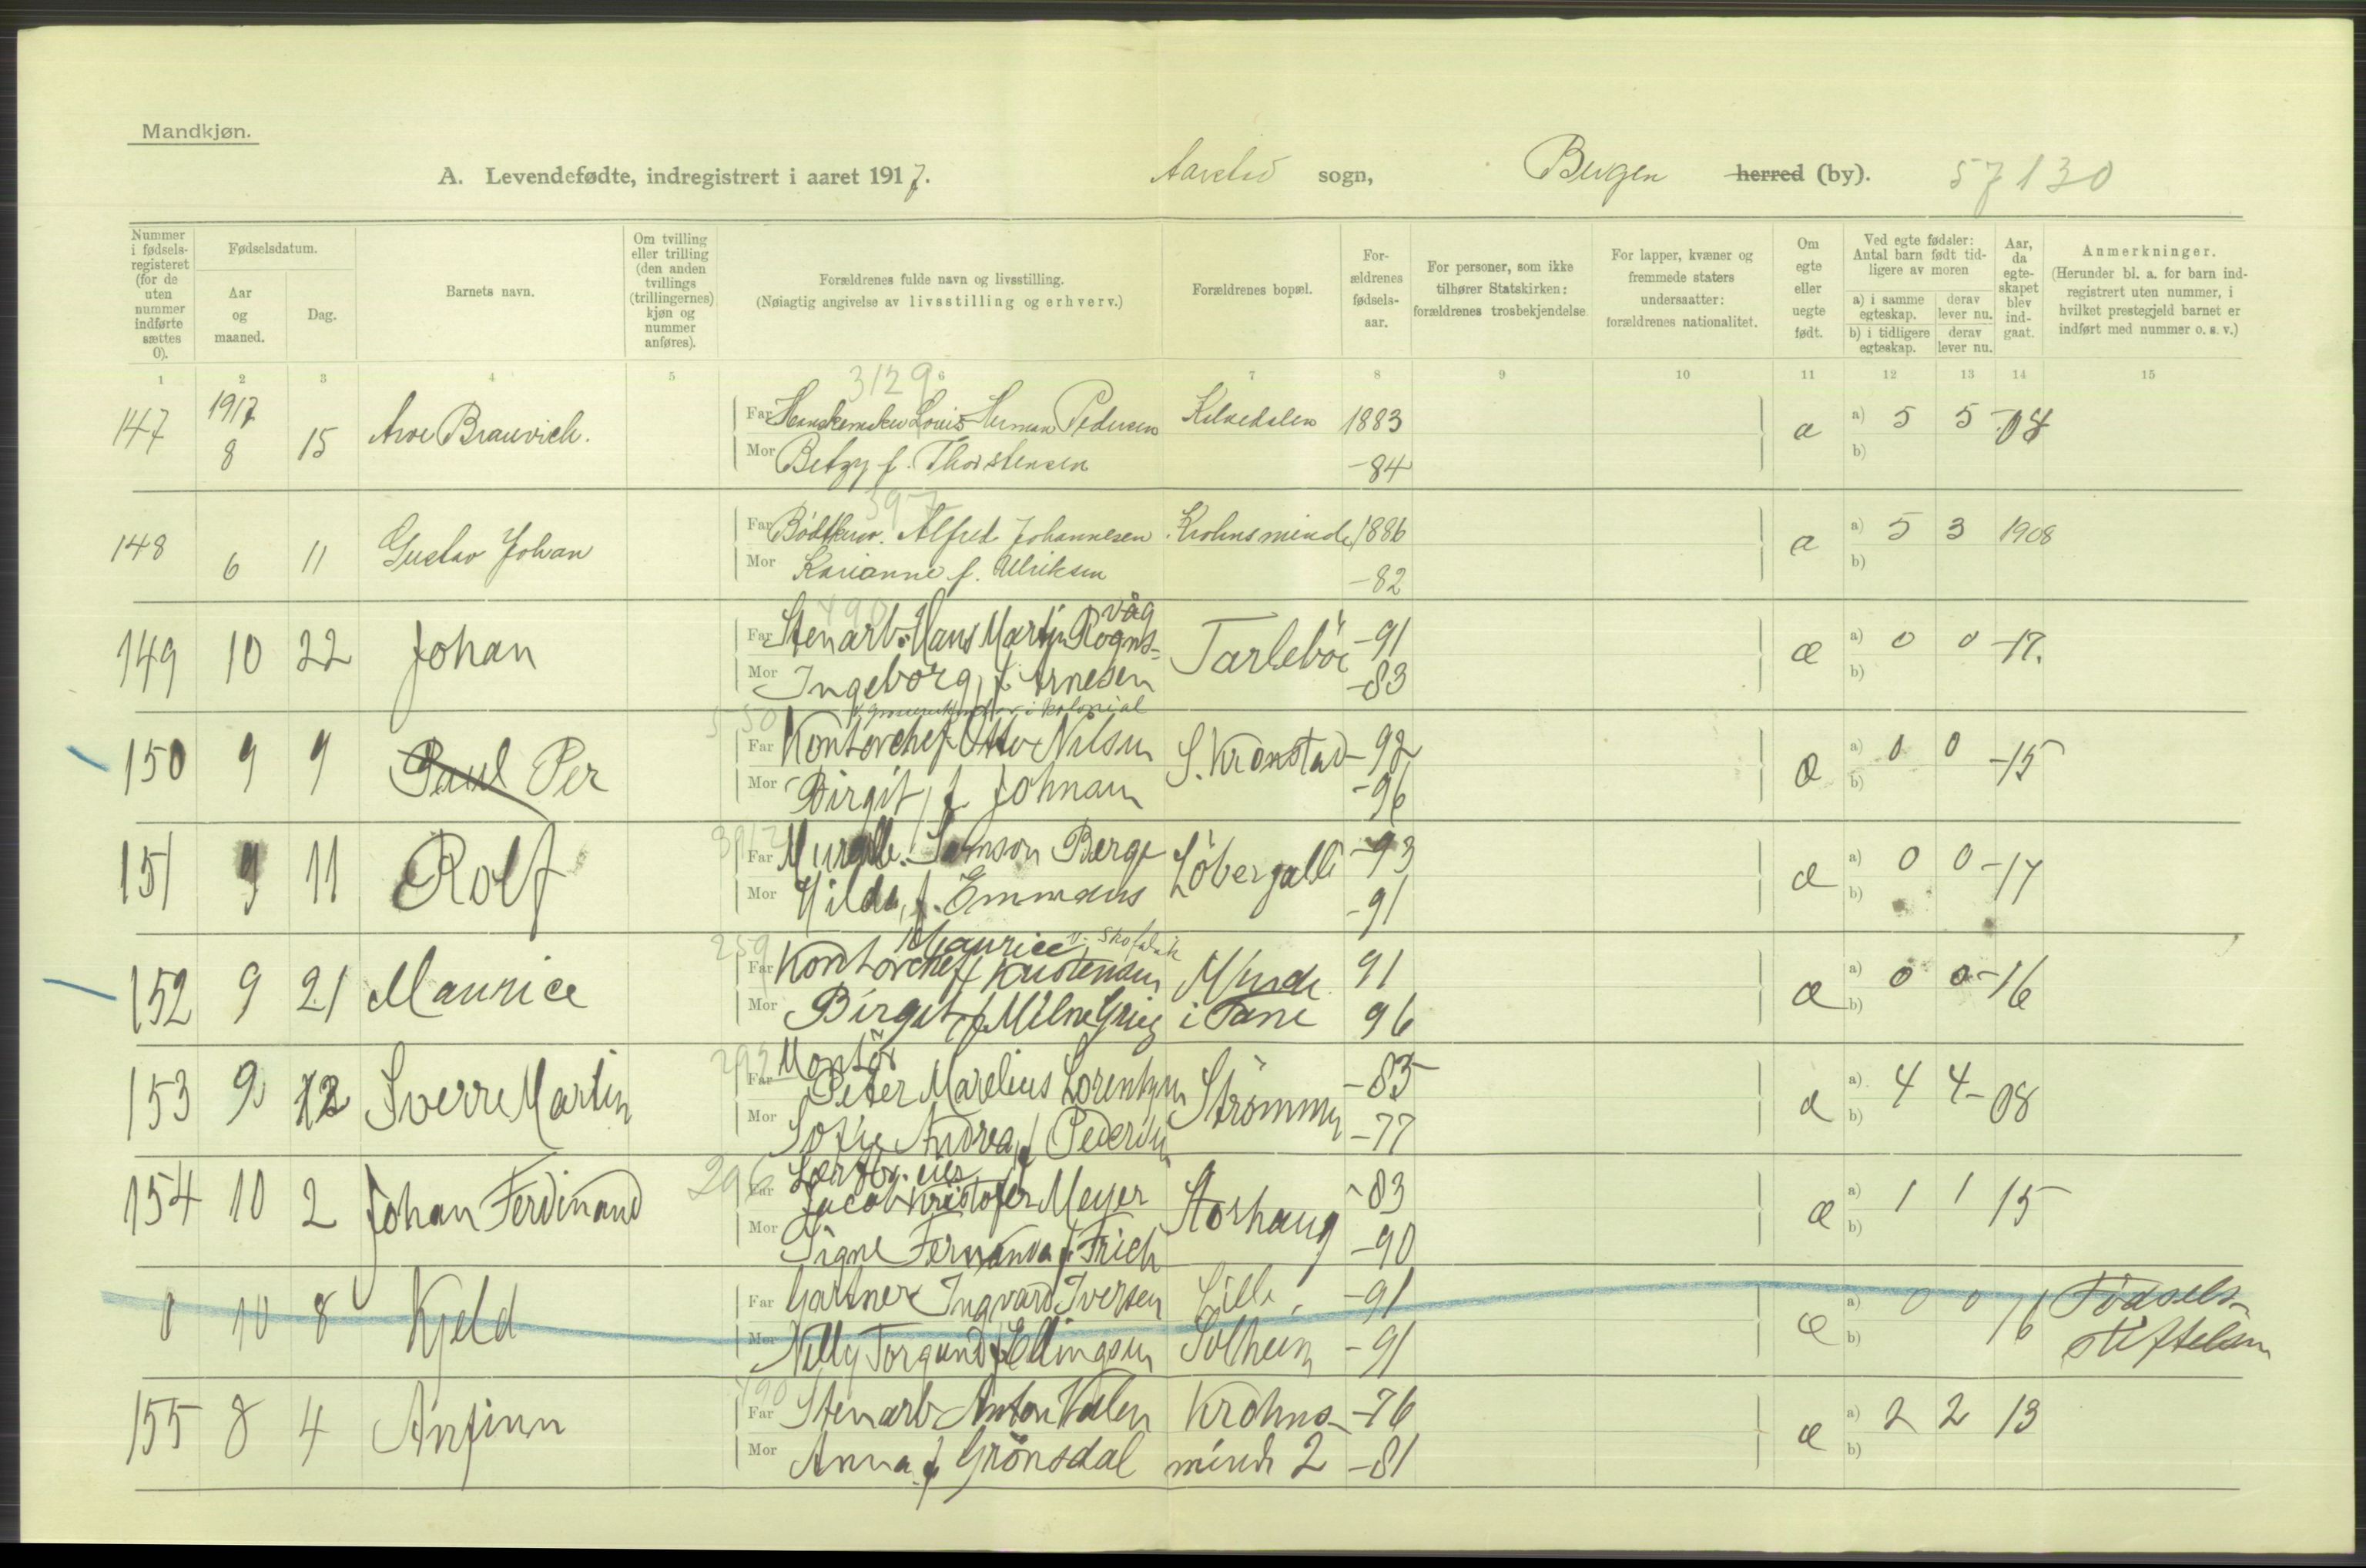 Mandkjøn.
A. Levendefødte, indregistrert i aaret 1917. Aarstad sogn, Bergen herred (by). 57130
Nummer i fødsels-registeret (for de uten nummer indførte sættes 0).
Fødselsdatum.
Aar og maaned.
Dag.
Barnets navn.
Om tvilling eller trilling (den anden tvillings (trillingernes) kjøn og nummer anføres).
Forældrenes fulde navn og livsstilling.
(Nøiagtig angivelse av livsstilling og erhverv.)
Forældrenes bopæl.
For-ældrenes fødsels-aar.
For personer, som ikke tilhører Statskirken: forældrenes trosbekjendelse
For lapper, kvæner og fremmede staters undersaatter: forældrenes nationalitet.
Om egte eller uegte født.
Ved egte fødsler: Antal barn født tid-ligere av moren
a) i samme egteskap. derav lever nu.
b) i tidligere egteskap. derav lever nu.
Aar, da egte-skapet blev ind-gaat.
Anmerkninger.
(Herunder bl. a. for barn ind-registrert uten nummer, i hvilket prestegjeld barnet er indført med nummer o. s. v.)
1 2 3 4 5 6 7 8 9 10 11 12 13 14 15
3129
147 1917 8 15 Arve Brauvich. Far Louis Herman Pedersen Kalvedalen 1883 æ a) 5 5 -07
Mor Betzy f. Thorstensen -84 b)
397
148 6 11 Gustav Johan Far Bødtker. Alfred Johannesen Krohnsminde 1886 æ a) 5 3 1908
Mor Karianne f. Ulriksen -82 b)
490
149 10 22 Johan Far Stenarb. Hans Martin Rogns-våg Tarlebö -91 æ a) 0 0 -17.
Mor Ingeborg, f. Arnesen -83 b)
550 i kolonial
150 9 9 Paul Per Far Kontorchef Otto Nilsen S. Kronstad -92 æ a) 0 0 -15
Mor Birgit, f. Johnsen -96 b)
391
151 9 11 Rolf Far Samson Berge Löbergalli -93 æ a) 0 0 -17
Mor Hilda, f. Emmaus -91 b)
259 Maurice v. skofabrik
152 9 21 Maurice Far Kontorchef Kristensen Minde 91 æ a) 0 0 -16
Mor Birgit f. Milne Grieg i Fane 96 b)
293 Montör
153 9 12 Sverre Martin Far Peter Marelius Lorentzen Strömmen -85 æ a) 4 4 -08
Mor Sofie Andrea, f. Pedersen -77 b)
296
154 10 2 Johan Ferdinand Far Jacob Kristofer Meyer Storhaug -83 æ a) 1 1 15
Mor Signe Fernanda f. Frich -90 b)
0 10 8 Kjeld Far Gartner Ingvard Iversen Lille -91 æ a) 0 0 16 Födsels-
Mor Nelly Torgund f. Ellingsen Solheim -91 b) stiftelsen
490
155 8 4 Arnfinn Far Stenarb Anton Valen Krohns- -76 æ a) 2 2 13
Mor Anna f. Grönsdal minde 2 -81 b)